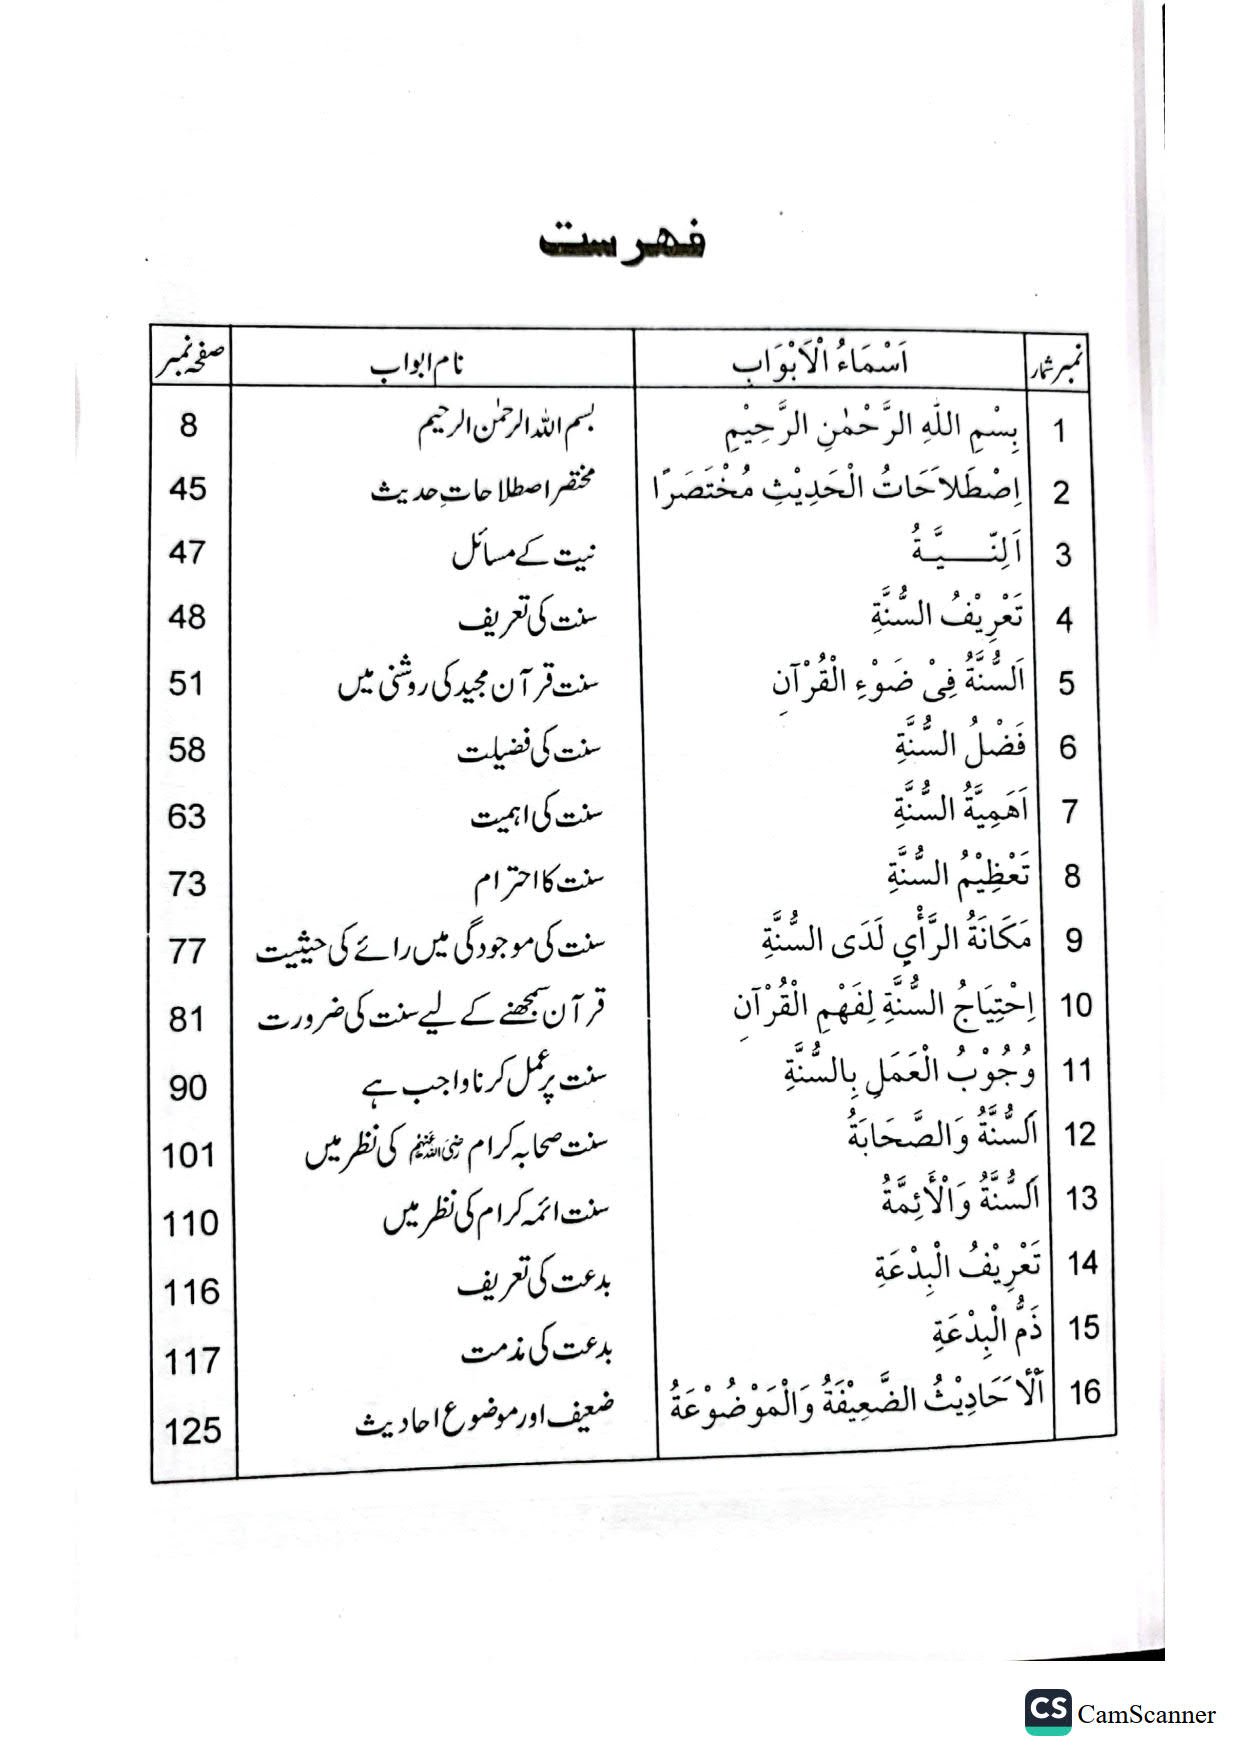 فہرست
نمبر شمار اَسْمَاءُ الْاَبْوَابِ نام ابواب صفحہ نمبر
1 بِسْمِ اللّٰهِ الرَّحْمٰنِ الرَّحِيْمِ بسم اللہ الرحمٰن الرحیم 8
2 اِصْطَلاَحَاتُ الْحَدِيْثِ مُخْتَصَرًا مختصر اصطلاحاتِ حدیث 45
3 اَلنِّـــيَّةُ نیت کے مسائل 47
4 تَعْرِيْفُ السُّنَّةِ سنت کی تعریف 48
5 اَلسُّنَّةُ فِىْ ضَوْءِ الْقُرْآنِ سنت قرآن مجید کی روشنی میں 51
6 فَضْلُ السُّنَّةِ سنت کی فضیلت 58
7 اَهَمِيَّةُ السُّنَّةِ سنت کی اہمیت 63
8 تَعْظِيْمُ السُّنَّةِ سنت کا احترام 73
9 مَكَانَةُ الرَّأْيِ لَدَى السُّنَّةِ سنت کی موجودگی میں رائے کی حیثیت 77
10 اِحْتِيَاجُ السُّنَّةِ لِفَهْمِ الْقُرْآنِ قرآن سمجھنے کے لیے سنت کی ضرورت 81
11 وُجُوْبُ الْعَمَلِ بِالسُّنَّةِ سنت پر عمل کرنا واجب ہے 90
12 اَلسُّنَّةُ وَالصَّحَابَةُ سنت صحابہ کرام رضی اللہ عنہم کی نظر میں 101
13 اَلسُّنَّةُ وَالْأَئِمَّةُ سنت ائمہ کرام کی نظر میں 110
14 تَعْرِيْفُ الْبِدْعَةِ بدعت کی تعریف 116
15 ذَمُّ الْبِدْعَةِ بدعت کی مذمت 117
16 اَلْاَحَادِيْثُ الضَّعِيْفَةُ وَالْمَوْضُوْعَةُ ضعیف اور موضوع احادیث 125
CS CamScanner